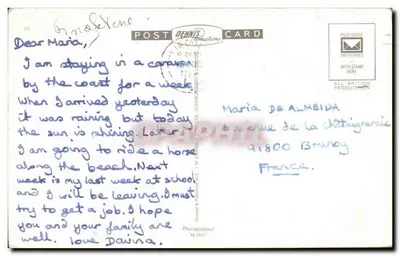 POST DENNIS CARD
Dear Maria,
I am staying in a caravan
by the coast for a week
When I arrived yesterday
it was raining but today
the sun is shining. Later
I am going to ride a horse
along the beach. Next
week is my last week at school
and I will be leaving. I must
try to get a job. I hope
you and your family are
well. love Davina.
Maria DE ALMEIDA
avenue de la Châtaigneraie
91800 Brunoy
France.
ALL BRITISH
PRODUCTION
Photocolour